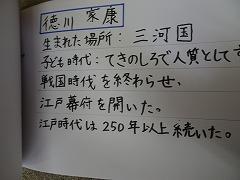 徳川 家康
生まれた場所： 三河国
子ども時代：てきのしろで人質として
戦国時代を終わらせ、
江戸幕府を開いた。
江戸時代は250年以上続いた。